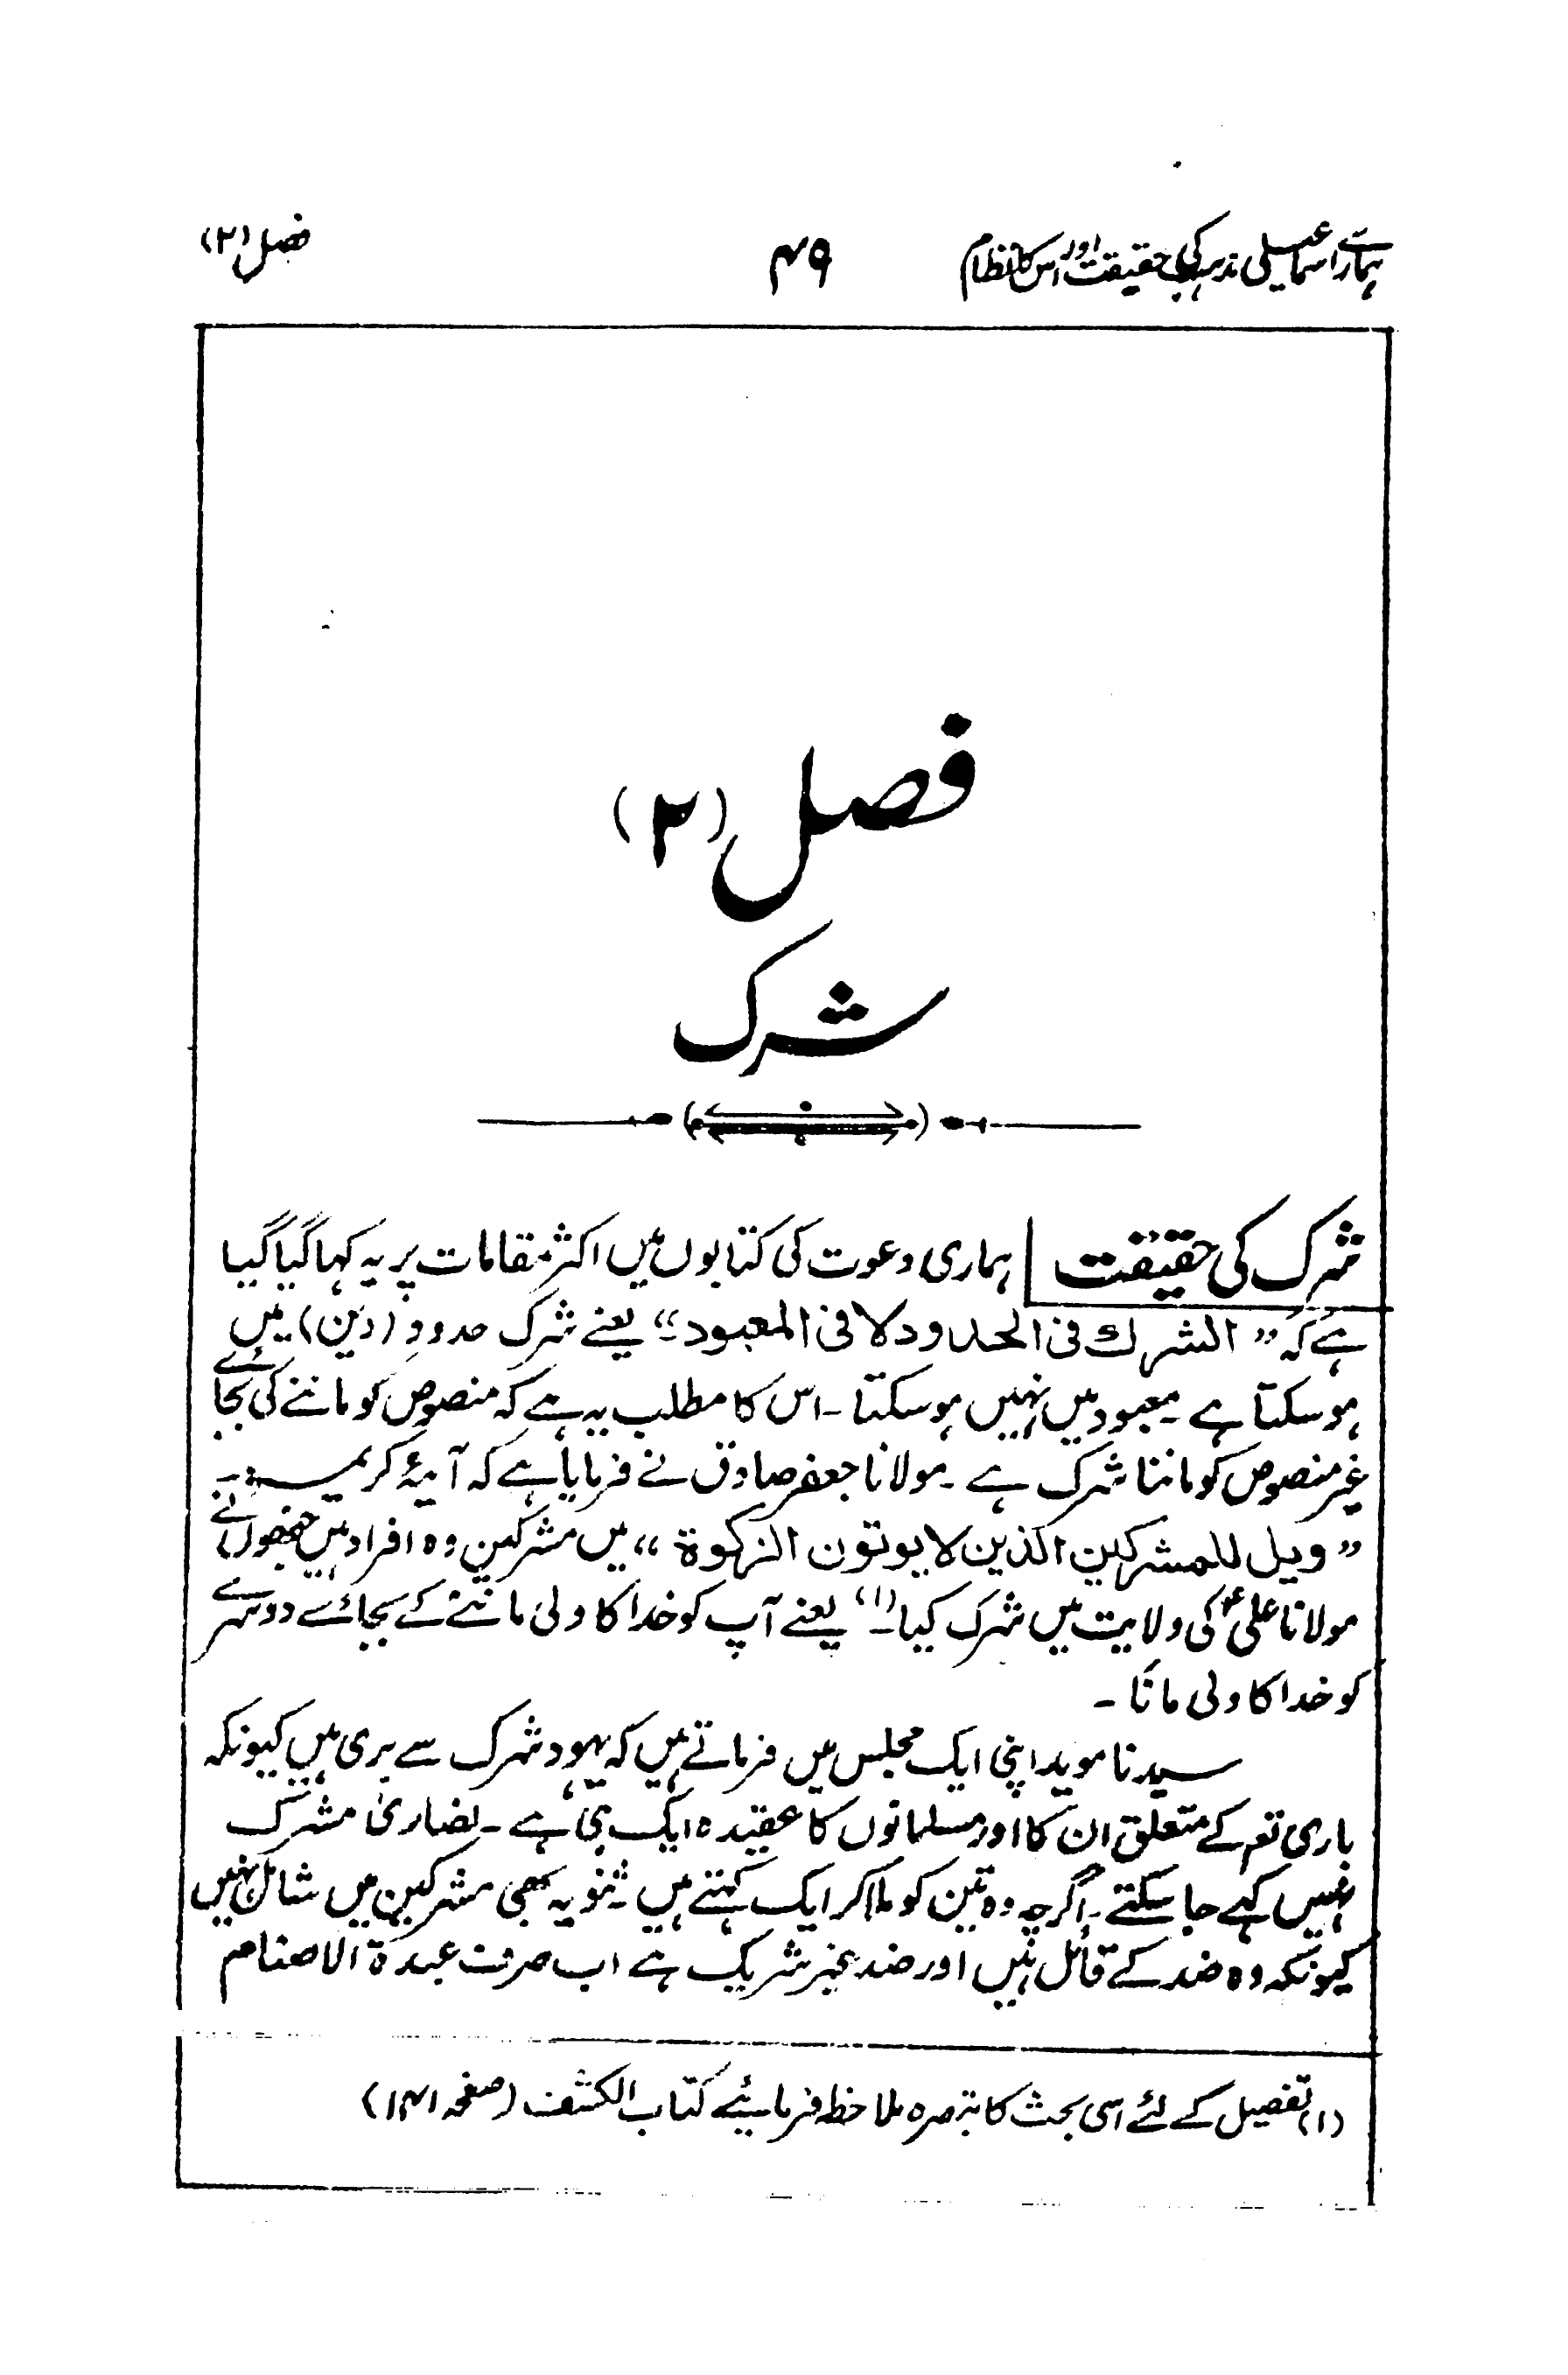 ہمارے اسماعیلی مذہب کی حقیقت اور اس کا نظام ۴۹ فصل (۲)
فصل (۲)
شرک
شرک کی حقیقت ہماری دعوت کی کتابوں میں اکثر مقامات پر یہ کہا گیا گیا
ہے کہ ”الشرك فی الحدود لا فی المعبود“ یعنے شرک حدودِ (دین) میں
ہو سکتا ہے۔ معبود میں نہیں ہو سکتا۔ اس کا مطلب یہ ہے کہ منصوص کو ماننے کی بجائے
غیر منصوص کو ماننا شرک ہے۔ مولانا جعفر صادق نے فرمایا ہے کہ آیۂ کریمہ۔
”ویل للمشرکین الذین لا یوتون الزکوة“ میں مشرکین وہ افراد ہیں جنھوں نے
مولانا علیؑ کی ولایت میں شرک کیا۔(۱) یعنے آپ کو خدا کا ولی ماننے کے بجائے دوسرے
کو خدا کا ولی مانا۔
سیدنا موید اپنی ایک مجلس میں فرماتے ہیں کہ یہود شرک سے بری ہیں کیونکہ
باری تعم کے متعلق ان کا اور مسلمانوں کا عقیدہ ایک ہی ہے۔ نصاریٰ مشرک
نہیں کہے جا سکتے۔ اگرچہ وہ تین کو ملا کر ایک کہتے ہیں۔ ثنویہ بھی مشرکین میں شامل نہیں
کیونکہ وہ ضد کے قائل ہیں اور ضد بغیر شریک ہے اب صرف عبدة الاصنام
(۱) تفصیل کے لئے اسی بحث کا تبصرہ ملاحظہ فرمائیے کتاب الکشف (صفحہ ۱۴۱)